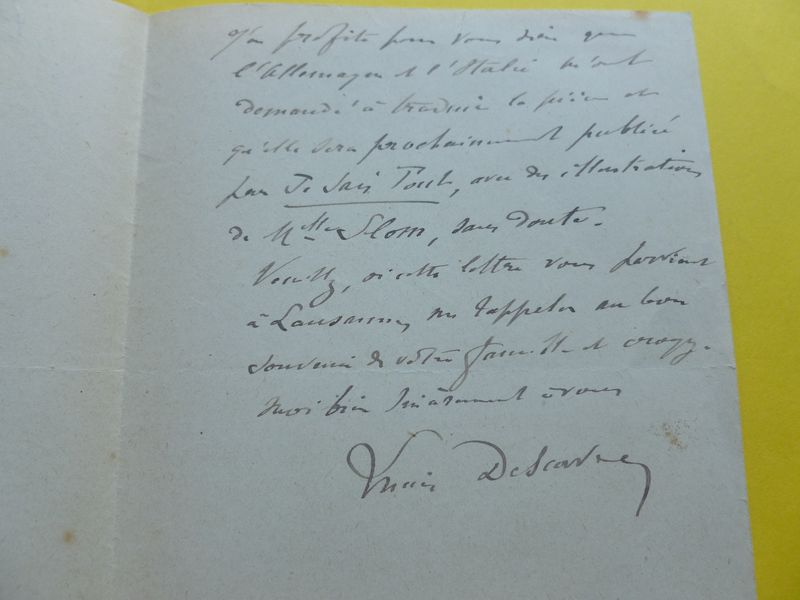 J'en profite pour vous dire que
l'Allemagne et l'Italie m'ont
demandé à traduire la pièce et
qu'elle sera prochainement publiée
par Je Sais Tout, avec des illustrations
de Mlle Slom, sans doute.
Veuillez, si cette lettre vous parvient
à Lausanne, me rappeler au bon
souvenir de votre famille et croyez-
moi bien sincèrement à vous
Lucien Descaves